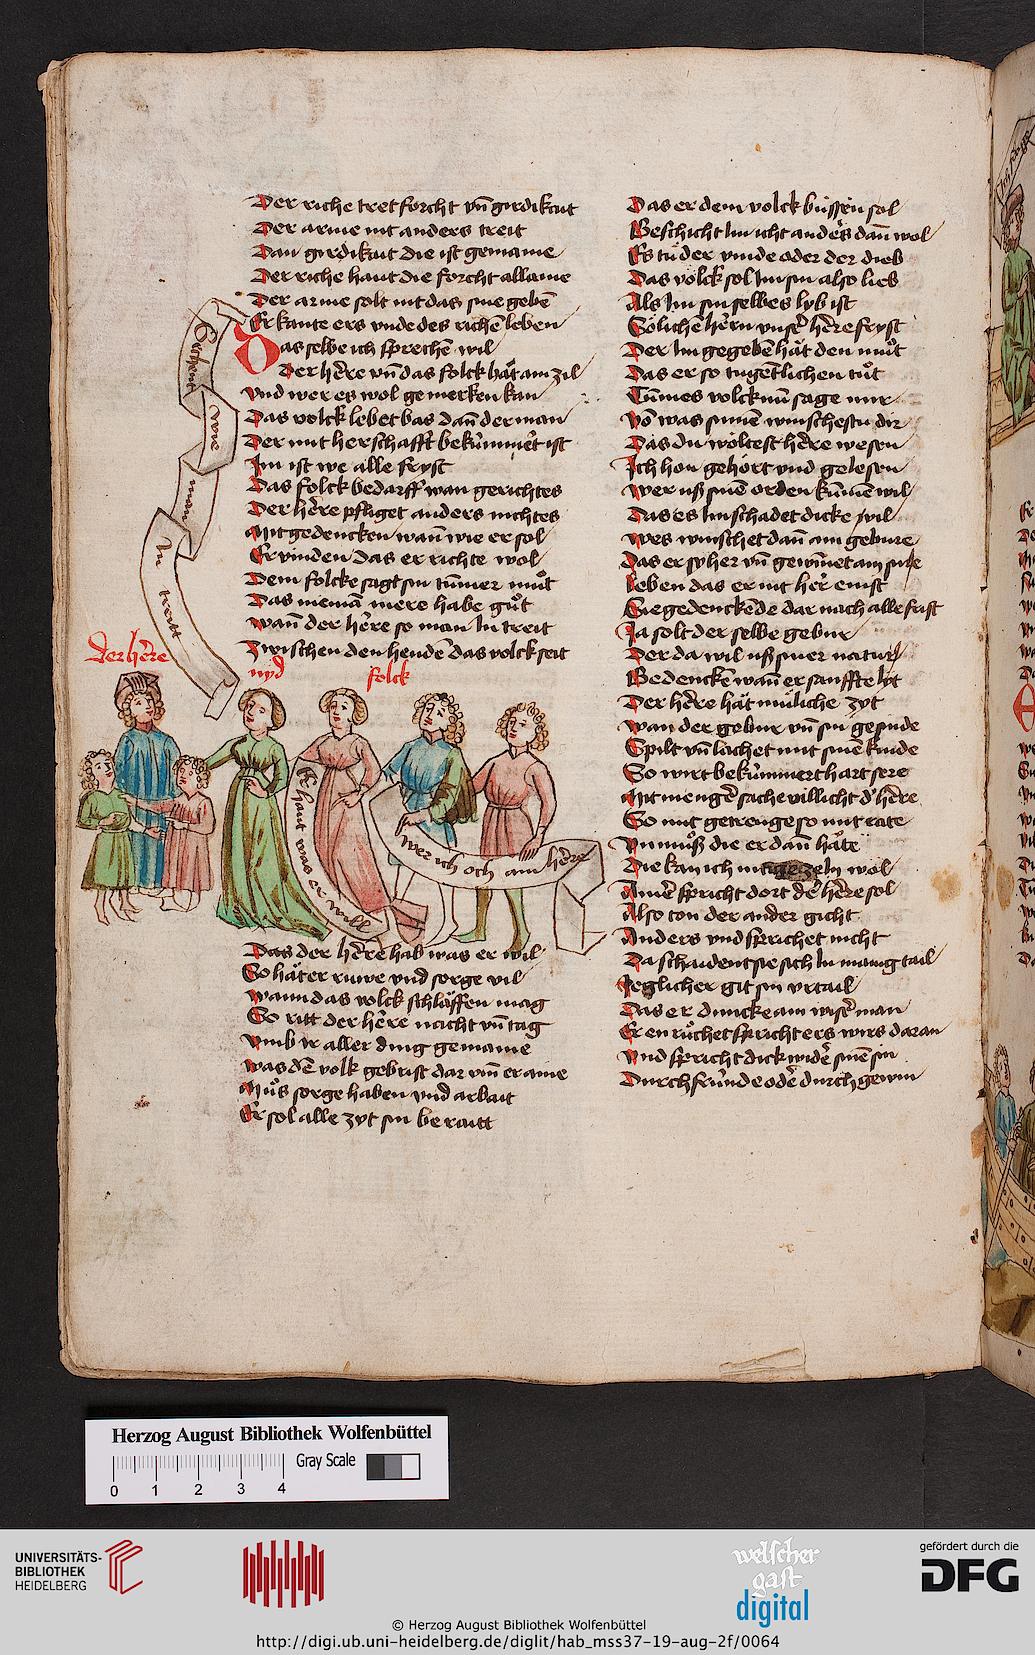 Der riche tret forcht vn̄ girdikait
Der arme nit anders treit
Dan girdikait die ist gemaine
Der riche hant die forcht allaine
Der arme solt nit das sine gebē
Erkante ers vnde des richē leben
Das selbe ich sprechē wil
Der he̊re vn̄ das folck hät ain zil
vnd wer es wol gemerken kan
Das volck lebet bas dan̄ der man
Der mit herschafft bekümmēt ist
Im ist we alle fryst
Das folck bedarff wan gerichtes
Der he̊re pfliget anders nichtes
Mit gedencken wan̄ wie er sol
Ervinden das er richte wol
Dem folcke sagt sin tūmer mu̇t
Das niemā mere habe gu̇t
wan̄ der he̊re so man In treit
Zwischen den hendē das volck seit
Sechent wie man In treitt
Der he̊re
nyd
folck
Er haut was er will
wer ich och ain he̊re
Das der he̊re hab was er wil
So hät er ruwe vnd sorge vil
wann das volck schläffen mag
So ritt der he̊re nacht vn̄ tag
vmb ir aller ding gemaine
was dē volk gebrist dar vm̄ er aine
Mu̇s sorge haben vnd arbait
Er sol alle zyt sin beraitt
Das er dem volck büssen sol
Beschicht Im icht andes dan̄ wol
Es tü der vinde oder der dieb
Das volck sol Im sin also lieb
Als Im sin selbes lyb ist
Sölichē he̊rn vnser he̊re fryst
Der Im gegebē hät den mu̇t
Das er so tugentlichen tu̇t
Tūmes volck nū sage mir
vō was sinnē winschestu dir
Das du wöltest he̊re wesen
Ich hon gehört vnd gelesen
wer uß sinē orden kūmē wil
Das es Im schadet dicke vil
wes winschet dan̄ ain gebure
Das er sy her vn̄ gewin̄et ain sure
leben das er nit her enist
Sie gedenckēde dar nach alle frist
Ja solt der selbe gebur
Der da wil uß siner natur
Bedenckē wan̄ er sanffte lyt
Der he̊re hät müliche zyt
wan der gebur vn̄ sin gesinde
Spilt vn̄ lachet mit sinē kinde
So wirt bekümmert hart sere
Mit menger sache villicht d' he̊re
So mit getrenge so mit rate
vnmu̇ß die er dan̄ häte
Die kan ich nit gezeln wol
Ainer spricht dort der he̊re sol
Also ton der ander gicht
Anders vnd sprichet nicht
Da schaident sie sich In manig tail
Ieglicher git sin vrtail
Das er duncke ain wiser man
Er enru̇chet spricht ers wirs daran
vnd spricht dick wider sinē sin
Durch frunde oder durch gewin
Herzog August Bibliothek Wolfenbüttel
Gray Scale
0 1 2 3 4
UNIVERSITÄTS-
BIBLIOTHEK
HEIDELBERG
welscher
gast
digital
gefördert durch die
DFG
© Herzog August Bibliothek Wolfenbüttel
http://digi.ub.uni-heidelberg.de/diglit/hab_mss37-19-aug-2f/0064